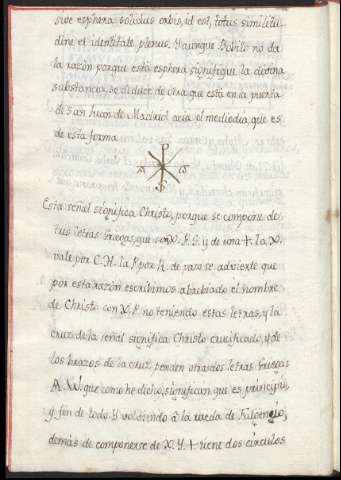 sive esphera solidus orbis, id est, totus similitu-
dine et identitate plenus. Y aunque Bobilo no da
la razón porque esta esphera signifique la divina
substancia, se deduce de otra que está en la puerta
de San Juan de Madrid acia el mediodia, que es
de esta forma.
P
A ω
S
Esta señal significa Christo, porque se compone de
tres letras Griegas, que son X. P. S. y de una +. la X.
vale por C. H. la P. por R. de paso se advierte que
por esta razón escribimos abrebiado el nombre
de Christo con X. P. no teniendo estas letras, y la
cruz de la señal significa Christo crucificado, y de
los brazos de la cruz penden otras dos letras Griegas
A. W. que como he dicho, significan que es principio,
y fin de todo. Y volviendo â la rueda de
demás de componerse de X. Y. + tiene dos circulos